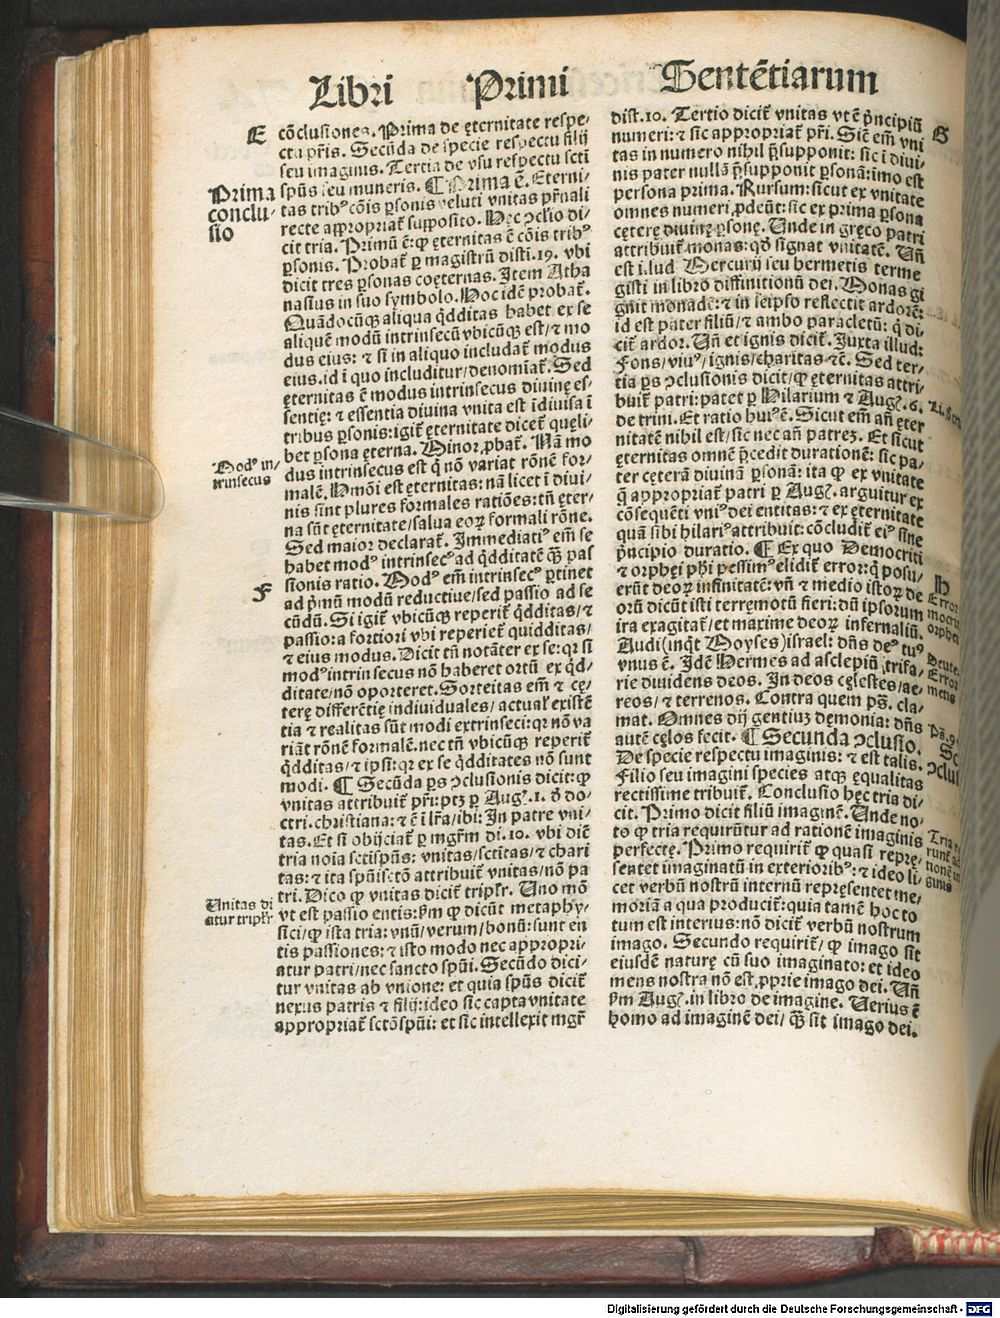 Libri Primi Sentētiarum
E
cōclusiones. Prima de ęternitate respe-
ctu pr̄is. Secūda de specie respectu filij
seu imaginis. Tertia de vsu respectu scti
spūs seu muneris. ¶ Prima ē. Eterni-
tas tribꝰ cōis ꝑsonis veluti vnitas pr̄nali
recte appropriat᷑ supposito. Hec ꝯclō di-
cit tria. Primū ē: ꝙ ęternitas ē cōis tribꝰ
ꝑsonis. Probat᷑ ꝑ magistrū disti. 19. vbi
dicit tres ꝑsonas coęternas. Item Atha
nasius in suo symbolo. Hoc idē probat᷑.
Quādocūqꝫ aliqua q̇dditas habet ex se
aliquē modū intrinsecū vbicūqꝫ est/ ⁊ mo
dus eius: ⁊ si in aliquo includat᷑ modus
eius. id ī quo includitur/ denomīat᷑. Sed
ęternitas ē modus intrinsecus diuinę es-
sentię: ⁊ essentia diuina vnita est īdiuisa ī
tribus ꝑsonis: igit᷑ ęternitate dicet᷑ quęli-
bet ꝑsona ęterna. Minor ꝓbat᷑. Nā mo
dus intrinsecus est q̇ nō variat rōnē for-
malē. Hmōi est ęternitas: nā licet ī diui/
nis sint plures formales ratiōes: tn̄ ęter-
na sūt ęternitate/ salua eoꝝ formali rōne.
Sed maior declarat᷑. Immediatiꝰ em̄ se
habet modꝰ intrinsecꝰ ad q̇dditatē qꝫ̄ pas
sionis ratio. Modꝰ em̄ intrinsecꝰ ꝑtinet
ad pͥmū modū reductiue/ sed passio ad se
cūdū. Si igit᷑ vbicūqꝫ reperit᷑ q̇dditas/ ⁊
passio: a fortiori vbi reperiet᷑ quidditas/
⁊ eius modus. Dicit tn̄ notāter ex se: qꝛ si
modꝰ intrinsecus nō haberet ortū ex q̇d/
ditate/ nō oporteret. Sorteitas em̄ ⁊ cę-
terę differētię indiuiduales/ actualꝭ existē
tia ⁊ realitas sūt modi extrinseci: qꝛ nō va
riāt rōnē formalē. nec tn̄ vbicūqꝫ reperit᷑
q̇dditas/ ⁊ ipsi: qꝛ ex se q̇dditates nō sunt
modi. ¶ Secūda ꝑs ꝯclusionis dicit: ꝙ
vnitas attribuit᷑ pr̄i: ptꝫ ꝑ Augꝫ. 1. đ do-
ctri. christiana: ⁊ ē ī lr̄a/ ibi: In patre vni-
tas. Et si obijciat᷑ ꝑ mgr̄m di. 10. vbi diē
tria noīa sctīspūs: vnitas/ sctītas/ ⁊ chari
tas: ⁊ ita spūisctō attribuit᷑ vnitas/ nō pa
tri. Dico ꝙ vnitas dicit᷑ triplr̄. Uno mō
vt est passio entis: ꝑm ꝙ dicūt metaphy-
sici/ ꝙ ista tria: vnū/ verum/ bonū: sunt en
tis passiones: ⁊ isto modo nec appropri-
atur patri/ nec sancto spūi. Secūdo dici-
tur vnitas ab vnione: et quia spūs dicit᷑
nexus patris ⁊ filij: ideo sic capta vnitate
appropriat᷑ sctōspūi: et sic intellexit mgr̄
Prima
conclu-
sio
Modꝰ in/
trinsecus
F
Unitas di
citur triplr̄
dist. 10. Tertio dicit᷑ vnitas vt ē pͥncipiū
numeri: ⁊ sic appropriat᷑ pr̄i. Sic̄ em̄ vni
tas in numero nihil p̄supponit: sic ī diui/
nis pater nullā p̄supponit ꝑsonā: imo est
persona prima. Rursum: sicut ex vnitate
omnes numeri ꝓdeūt: sic ex prima ꝑsona
cęterę diuinę ꝑsonę. Unde in gręco patri
attribuit᷑ monas: qđ signat vnitatē. Un̄
est illud Mercurij seu hermetis terme
gisti in libro diffinitionū dei. Monas gi
gnit monadē: ⁊ in seipso reflectit ardorē:
id est pater filiū/ ⁊ ambo paracletū: q̇ di
cit᷑ ardor. Un̄ et ignis dicit᷑. Juxta illud:
Fons/ viuꝰ/ ignis/ charitas ⁊c̄. Sed ter-
tia ꝑs ꝯclusionis dicit/ ꝙ ęternitas attri/
buit᷑ patri: patet ꝑ Hilarium ⁊ Augꝫ. 6.
de trini. Et ratio huiꝰ ē. Sicut em̄ an̄ ęter
nitatē nihil est/ sic nec an̄ patreꝫ. Et sicut
ęternitas omnē p̄cedit durationē: sic pa/
ter cęterā diuinā ꝑsonā: ita ꝙ ex vnitate
q̄ appropriat᷑ patri ꝑ Augꝫ. arguitur ex
cōsequēti vniꝰ dei entitas: ⁊ ex ęternitate
quā sibi hilariꝰ attribuit: cōcludit᷑ eiꝰ sine
pͥncipio duratio. ¶ Ex quo Democriti
⁊ orphęi ph̄i pessimꝰ elidit᷑ error: q̇ posu/
erūt deoꝝ infinitatē: vn̄ ⁊ medio istoꝝ de
orū dicūt isti terręmotū fieri: dū ipsorum
ira exagitat᷑/ et maxime deoꝝ infernaliū.
Audi (inqͭ Moyses) israel: dn̄s deꝰ tuꝰ
vnus ē. Idē Hermes ad asclepiū trifa/
rie diuidens deos. In deos cęlestes/ ae/
reos/ ⁊ terrenos. Contra quem pꝫ. cla-
mat. Omnes dij gentiuꝫ dęmonia: dn̄s
autē cęlos fecit. ¶ Secunda ꝯclusio.
De specie respectu imaginis: ⁊ est talis.
Filio seu imagini species atqꝫ ęqualitas
rectissime tribuit᷑. Conclusio hęc tria di/
cit. Primo dicit filiū imaginē. Unde no-
to ꝙ tria requirūtur ad rationē imaginis
perfectę. Primo requirit᷑ ꝙ quasi reprę-
sentet imaginatū in exterioribꝰ: ⁊ ideo li-
cet verbū nostrū internū repręsentet me/
moriā a qua producit᷑: quia tamē hoc to
tum est interius: nō dicit᷑ verbū nostrum
imago. Secundo requirit᷑/ ꝙ imago sit
eiusdē naturę cū suo imaginato: et ideo
mens nostra nō est ꝓprie imago dei. Un̄
ꝑm Augꝫ. in libro de imagine. Uerius ē
homo ad imaginē dei/ qꝫ̄ sit imago dei.
G
H
Error
orphei
Deute.
Error
mens
Tria
Digitalisierung gefördert durch die Deutsche Forschungsgemeinschaft - DFG